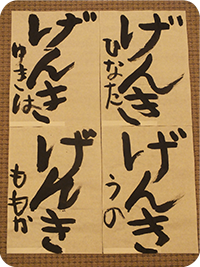 げんき
ひなた
げんき
ゆきは
げんき
うの
げんき
ももか